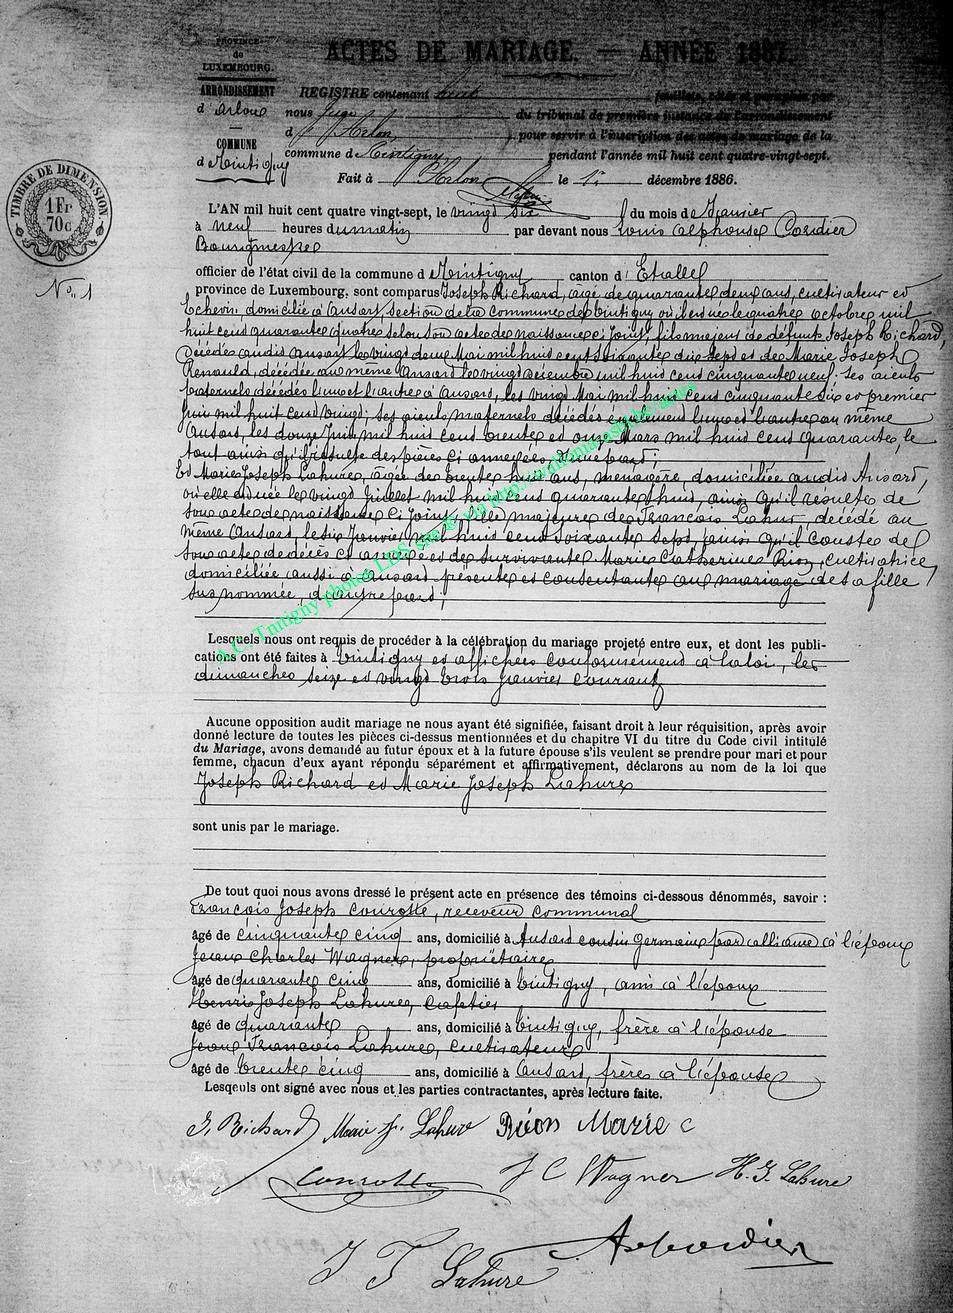 PROVINCE
de
LUXEMBOURG.
ACTES DE MARIAGE. — ANNÉE 1887.
ARRONDISSEMENT
d'Arlon
COMMUNE
de Tintigny
REGISTRE contenant huit feuillets, cotés et paraphés par
nous Juge du tribunal de première instance de l'arrondissement
d'Arlon pour servir à l'inscription des actes de mariage de la
commune de Tintigny pendant l'année mil huit cent quatre-vingt-sept.
Fait à Arlon le 1er décembre 1886.
TIMBRE DE DIMENSION
1 Fr
70 c
No. 1
L'AN mil huit cent quatre vingt-sept, le vingt six du mois de Janvier
à neuf heures du matin par devant nous Louis Alphonse Cordier
Bourgmestre
officier de l'état civil de la commune de Tintigny canton d'Etalle
province de Luxembourg, sont comparus Joseph Richard, âgé de quarante deux ans, cultivateur et
Echevin domicilié à Ansart section de la commune de Tintigny où il est né le quatre octobre mil
huit cent quarante quatre selon son acte de naissance ci joint, fils majeur de défunts Joseph Richard,
décédé audit Ansart le vingt deux Mai mil huit cent soixante dix sept et de Marie Joseph
Renauld, décédée au même Ansart le vingt décembre mil huit cent cinquante neuf; ses aïeuls
paternels décédés l'un et l'autre à Ansart, les vingt Mai mil huit cent cinquante six et premier
Juin mil huit cent vingt; ses aïeuls maternels décédés également l'un et l'autre au même
Ansart, les douze Juin mil huit cent trente et onze Mars mil huit cent quarante, le
tout ainsi qu'il résulte des pièces ci annexées, d'une part;
Et Marie Joseph Lahure, âgée de trente huit ans, ménagère, domiciliée audit Ansart,
où elle est née le vingt Juillet mil huit cent quarante huit, ainsi qu'il résulte de
son acte de naissance ci joint, fille majeure de François Lahure, décédé au
même Ansart le six Janvier mil huit cent soixante sept, ainsi qu'il conste de
son acte de décès ci annexé et de survivante Marie Catherine Rion, cultivatrice,
domiciliée aussi à Ansart, présente et consentante au mariage de sa fille
susnommée, d'autre part;
A.C. Tintigny photos LDS site © via http://wallonia.estel.be/actes
Lesquels nous ont requis de procéder à la célébration du mariage projeté entre eux, et dont les publi-
cations ont été faites à Tintigny et affichées conformément à la loi, les
dimanches seize et vingt trois Janvier courant
Aucune opposition audit mariage ne nous ayant été signifiée, faisant droit à leur réquisition, après avoir
donné lecture de toutes les pièces ci-dessus mentionnées et du chapitre VI du titre du Code civil intitulé
du Mariage, avons demandé au futur époux et à la future épouse s'ils veulent se prendre pour mari et pour
femme, chacun d'eux ayant répondu séparément et affirmativement, déclarons au nom de la loi que
Joseph Richard et Marie Joseph Lahure
sont unis par le mariage.
De tout quoi nous avons dressé le présent acte en présence des témoins ci-dessous dénommés, savoir :
François Joseph Courotte, receveur communal
âgé de cinquante cinq ans, domicilié à Ansart cousin germain par alliance à l'époux
Jean Charles Wagner, propriétaire
âgé de quarante cinq ans, domicilié à Tintigny, ami à l'époux
Henri Joseph Lahure, Cafetier
âgé de quarante ans, domicilié à Tintigny, frère à l'épouse
Jean François Lahure, cultivateur
âgé de trente cinq ans, domicilié à Ansart, frère à l'épouse
Lesquels ont signé avec nous et les parties contractantes, après lecture faite.
J. Richard Marie J. Lahure Rion Marie C
Courotte J C Wagner H. J. Lahure
J F Lahure A Cordier